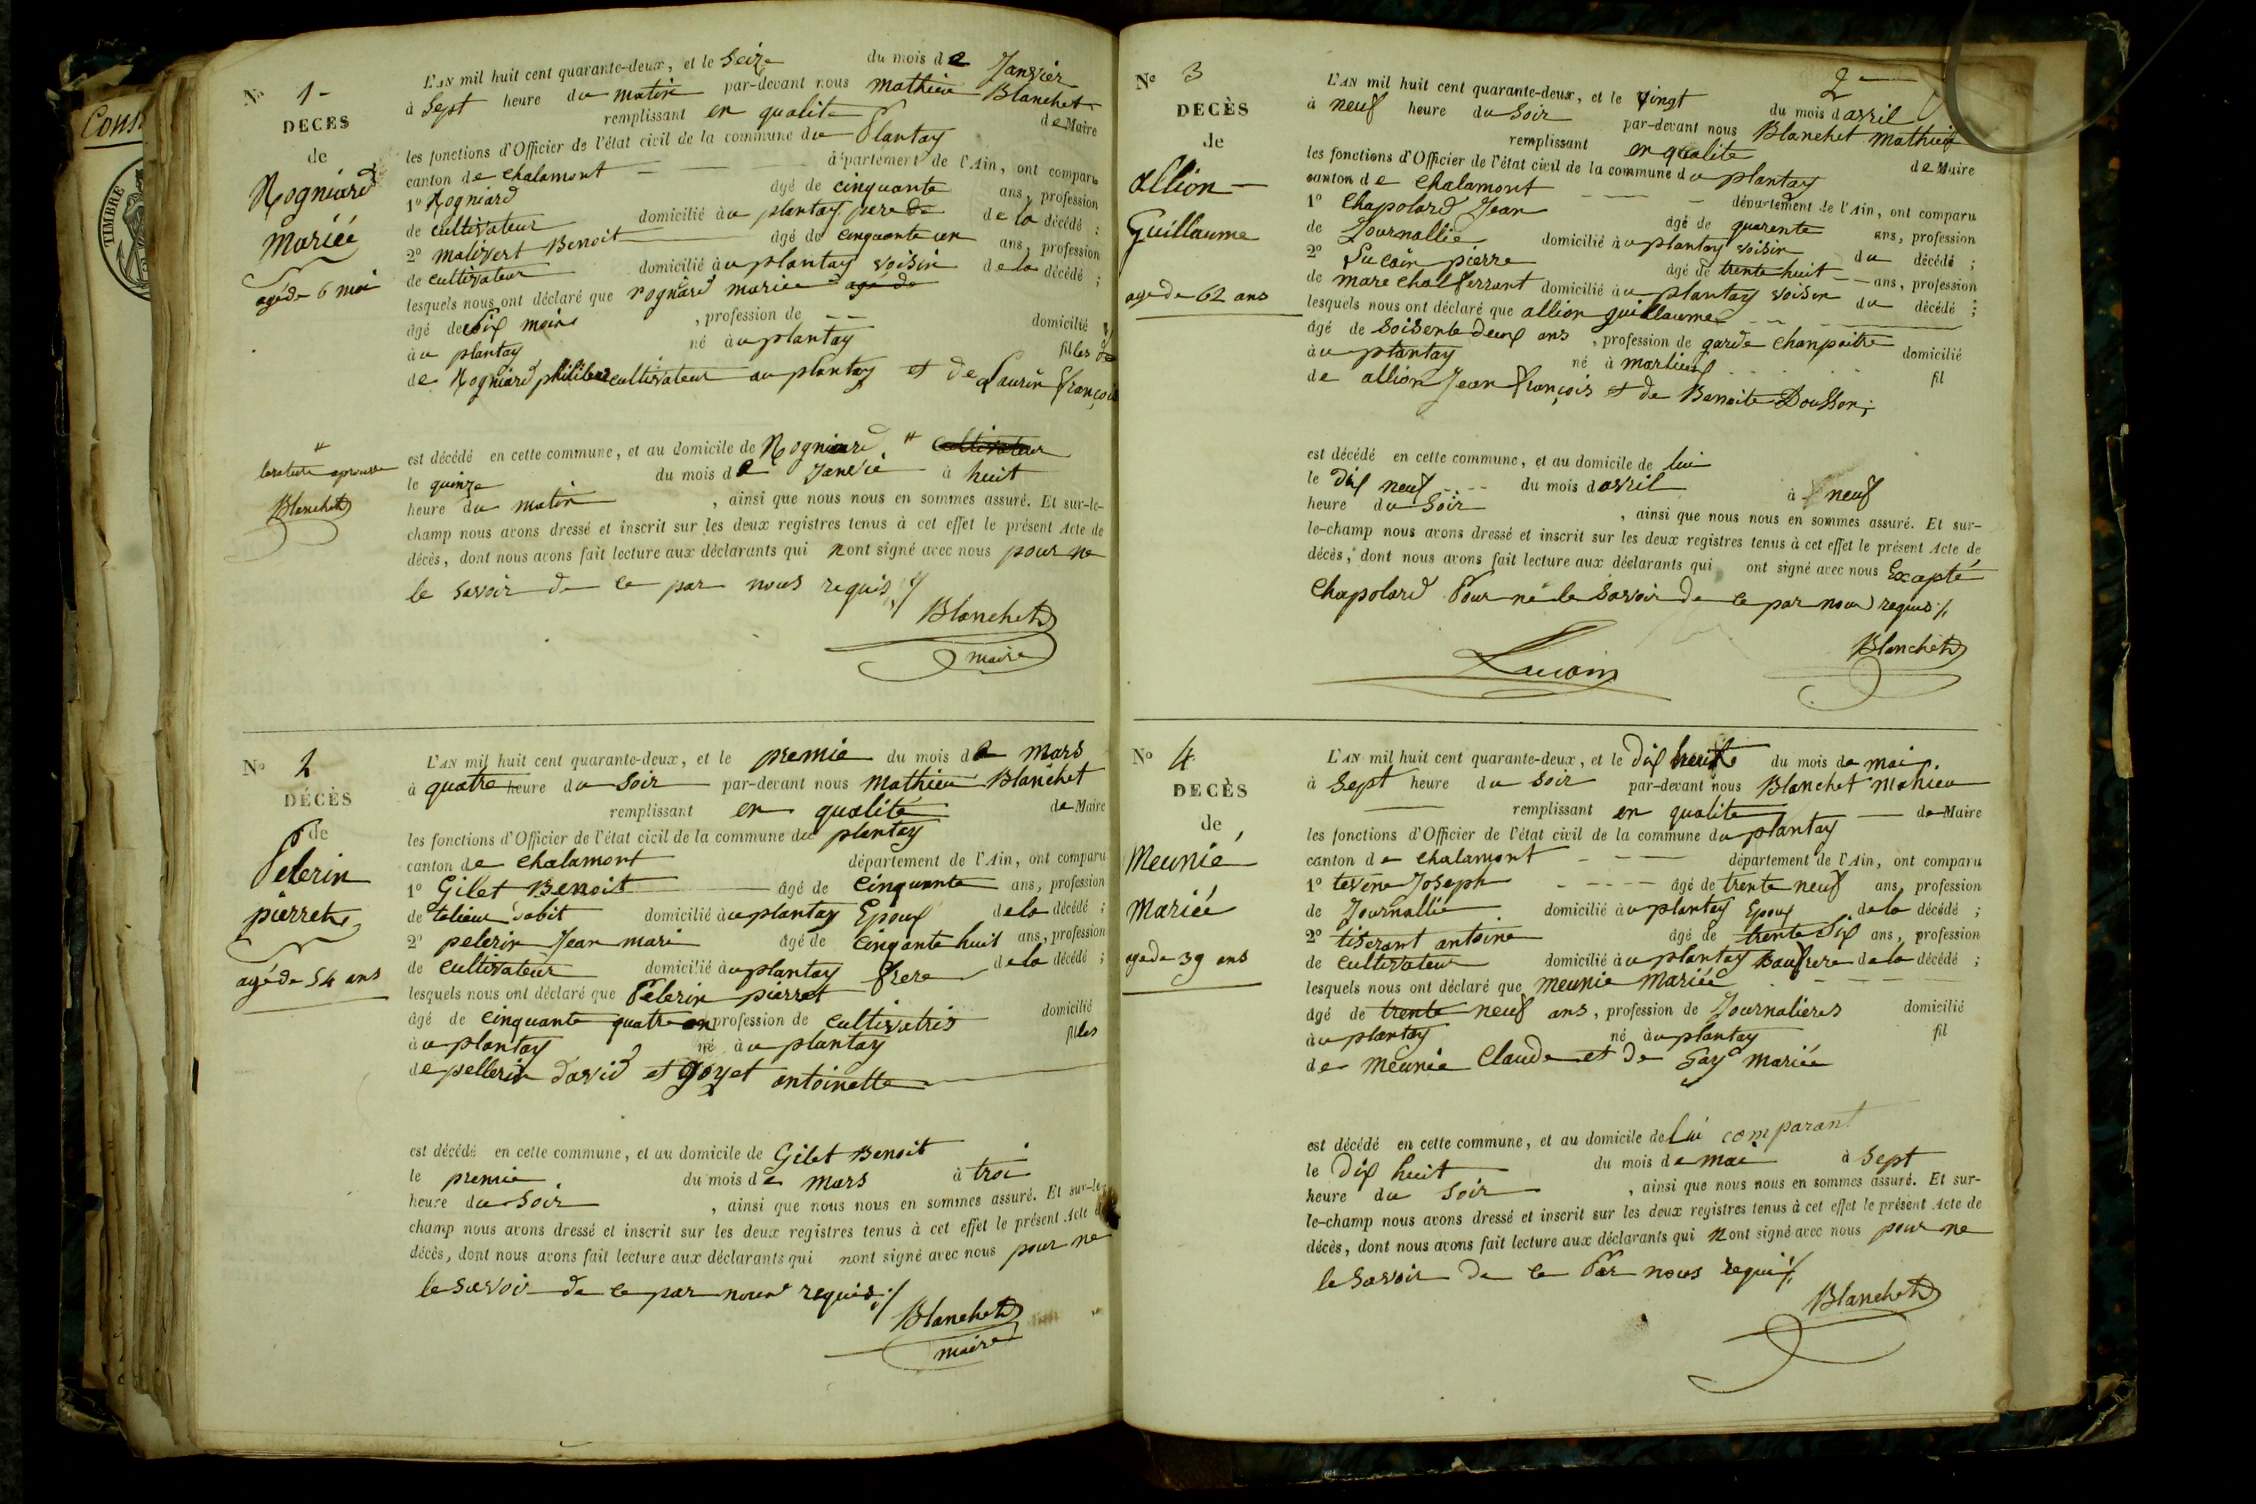 Cons
TIMBRE
No 1-
DECES
de
Rogniard
Mariéé
agé de 6 moi
L'AN mil huit cent quarante-deux, et le Seize du mois de Janvier
à Sept heure du matin par-devant nous mathieu Blanchet
remplissant en qualite de Maire
les fonctions d'Officier de l'état civil de la commune du Plantay
canton de chalamont département de l'Ain, ont comparu
1o Rogniard âgé de cinquante ans, profession
de cultivateur domicilié àu plantay pere de la décédé ;
2o malivert Benoit âgé de cinquante un ans, profession
de cultivateur domicilié àu plantay voisin de la décédé ;
lesquels nous ont déclaré que rogniard mariee agé de
âgé de six mois , profession de domicilié
àu plantay né àu plantay filles
de Rogniard philibert cultivateur au plantay et de Laurin françois
est décédé en cette commune, et au domicile de Rogniard " cultivateur
le quinze du mois de Janvié à huit
heure du matin , ainsi que nous nous en sommes assuré. Et sur-le-
champ nous avons dressé et inscrit sur les deux registres tenus à cet effet le présent Acte de
décès, dont nous avons fait lecture aux déclarants qui nont signé avec nous pour ne
le savoir de ce par nous requis
"
aprouve
Blanchet
Blanchet
maire
No 2
DÉCÈS
de
Pelerin
pierrette
agé de 54 ans
L'AN mil huit cent quarante-deux, et le premie du mois de mars
à quatre heure du Soir par-devant nous Mathieu Blanchet
remplissant en qualité de Maire
les fonctions d'Officier de l'état civil de la commune du plantay
canton de chalamont département de l'Ain, ont comparu
1o Gilet Benoit âgé de cinquante ans, profession
de talieur dabit domicilié àu plantay Epoux de la décédé ;
2o pelerin Jean mari âgé de cinqante huit ans, profession
de cultivateur domicilié àu plantay frere de la décédé ;
lesquels nous ont déclaré que Pelerin pierret
âgé de cinquante quatre an profession de cultivatris domicilié
àu plantay né àu plantay filles
de pellerin david et goyet antoinette
est décédé en cette commune, et au domicile de Gilet Benoit
le premie du mois de mars à troi
heure du Soir , ainsi que nous nous en sommes assuré. Et sur-le-
champ nous avons dressé et inscrit sur les deux registres tenus à cet effet le présent Acte d
décès, dont nous avons fait lecture aux déclarants qui nont signé avec nous pour ne
le savoir de ce par nous requis
Blanchet
maire
2
No 3
DECÈS
de
allion
Guillaume
agé de 62 ans
L'AN mil huit cent quarante-deux, et le vingt du mois d avril
à neuf heure du Soir par-devant nous Blanchet mathieu
remplissant en qualite de Maire
les fonctions d'Officier de l'état civil de la commune du plantay
canton de chalamont département de l'Ain, ont comparu
1o Chapolard Jean âgé de quarente ans, profession
de Journallie domicilié àu plantay voisin du décédé ;
2o Lucain pierre âgé de trente huit ans, profession
de marechal ferrant domicilié àu plantay voisin du décédé ;
lesquels nous ont déclaré que allion guillaume
âgé de soisente deux ans , profession de garde chanpaitre
àu plantay né à marlieux domicilié
de allion Jean françois et de Benoite Dousson fil
est décédé en cette commune, et au domicile de lui
le dix neuf du mois d avril à neuf
heure du Soir , ainsi que nous nous en sommes assuré. Et sur-
le-champ nous avons dressé et inscrit sur les deux registres tenus à cet effet le présent Acte de
décès, dont nous avons fait lecture aux déclarants qui ont signé avec nous Exapté
Chapolard Pour ne le Savoir de ce par nous requis
Lucain
Blanchet
No 4
DECÈS
de
Meunié
Mariéé
agé de 39 ans
L'AN mil huit cent quarante-deux, et le dix huit du mois de mai
à Sept heure du Soir par-devant nous Blanchet Mathieu
remplissant en qualite de Maire
les fonctions d'Officier de l'état civil de la commune du plantay
canton de chalamont département de l'Ain, ont comparu
1o tevene Joseph âgé de trente neuf ans, profession
de Journallié domicilié àu plantay Epoux de la décédé ;
2o tiserant antoine âgé de trente six ans, profession
de cultivateur domicilié àu plantay Baufrere de la décédé ;
lesquels nous ont déclaré que meunie Mariéé
âgé de trente neuf ans , profession de Journalieres domicilié
àu plantay né àu plantay fil
de meunie Claude et de Gay mariéé
est décédé en cette commune, et au domicile de Lui comparant
le dix huit du mois de mai à sept
heure du Soir , ainsi que nous nous en sommes assuré. Et sur-
le-champ nous avons dressé et inscrit sur les deux registres tenus à cet effet le présent Acte de
décès, dont nous avons fait lecture aux déclarants qui nont signé avec nous pour ne
le savoir de ce Par nous requis
Blanchet